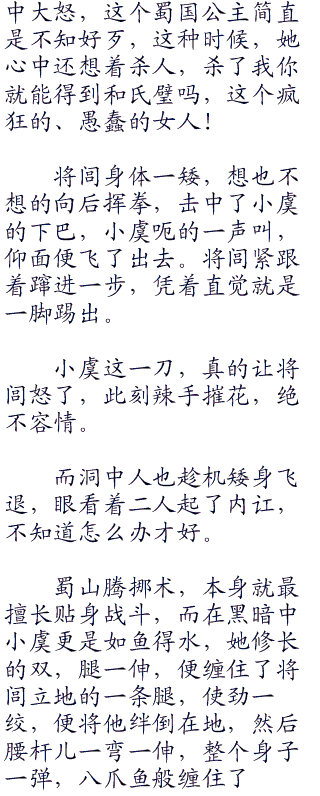 中大怒，这个蜀国公主简直
是不知好歹，这种时候，她
心中还想着杀人，杀了我你
就能得到和氏璧吗，这个疯
狂的、愚蠢的女人！
将闾身体一矮，想也不
想的向后挥拳，击中了小虞
的下巴，小虞呃的一声叫，
仰面便飞了出去。将闾紧跟
着蹿进一步，凭着直觉就是
一脚踢出。
小虞这一刀，真的让将
闾怒了，此刻辣手摧花，绝
不容情。
而洞中人也趁机矮身飞
退，眼看着二人起了内讧，
不知道怎么办才好。
蜀山腾挪术，本身就最
擅长贴身战斗，而在黑暗中
小虞更是如鱼得水，她修长
的双，腿一伸，便缠住了将
闾立地的一条腿，使劲一
绞，便将他绊倒在地，然后
腰杆儿一弯一伸，整个身子
一弹，八爪鱼般缠住了